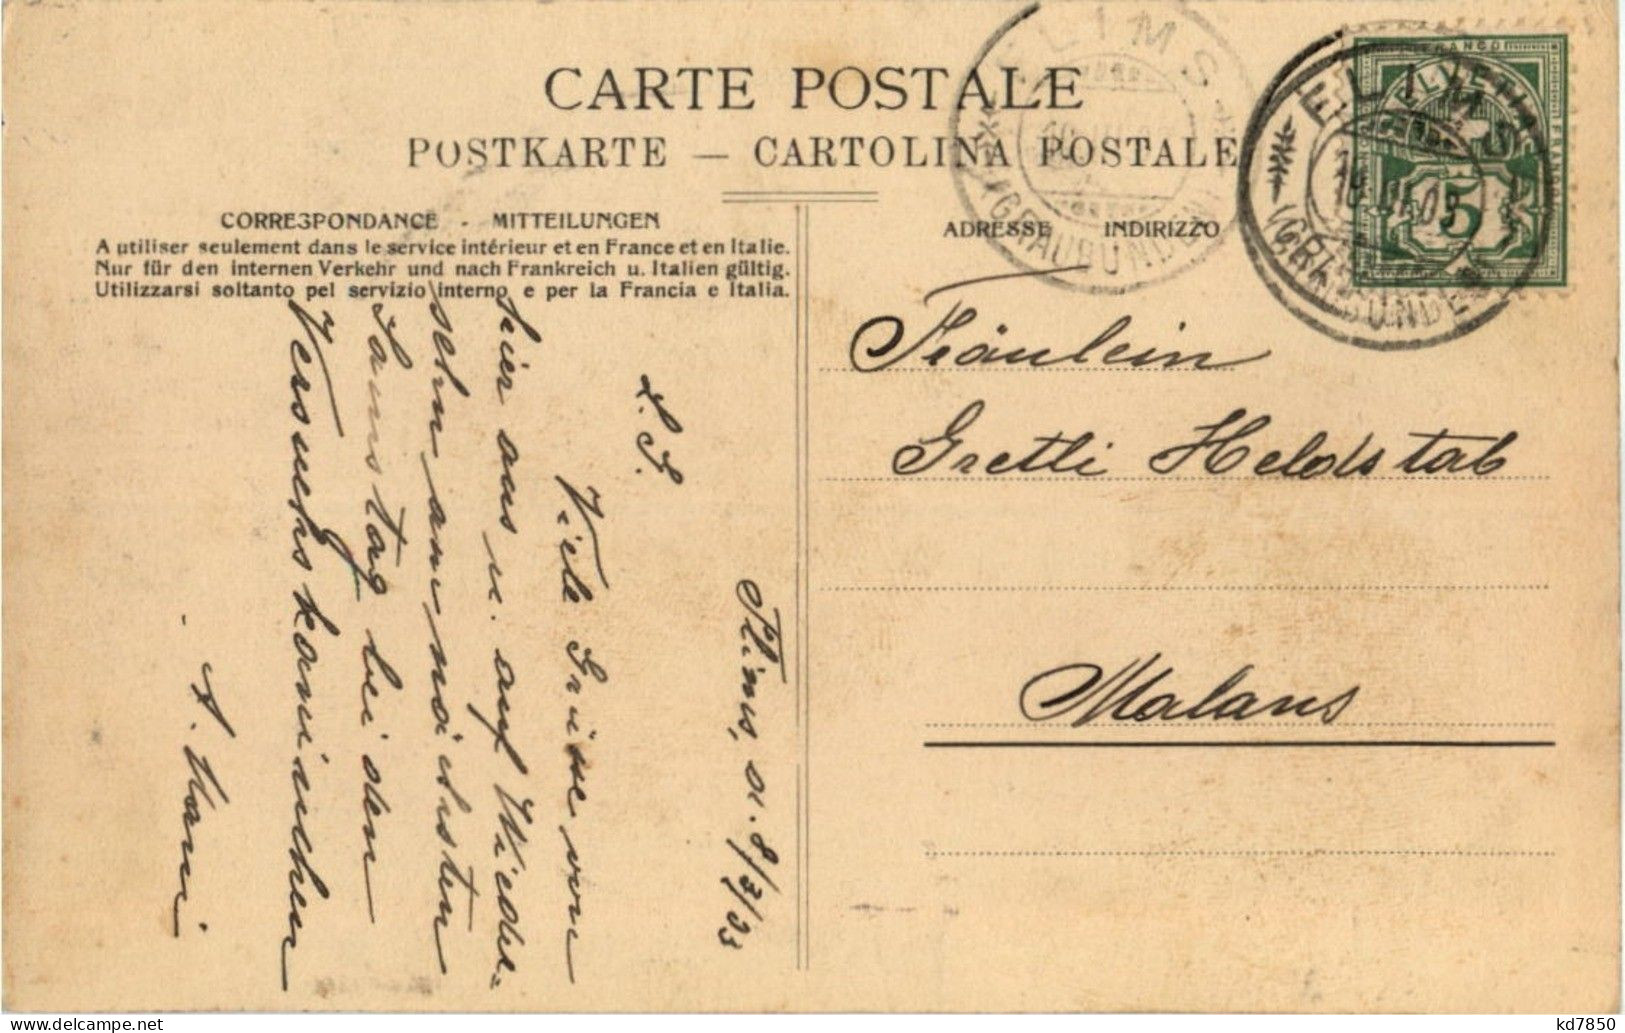 CARTE POSTALE
POSTKARTE — CARTOLINA POSTALE
CORRESPONDANCE - MITTEILUNGEN
A utiliser seulement dans le service intérieur et en France et en Italie.
Nur für den internen Verkehr und nach Frankreich u. Italien gültig.
Utilizzarsi soltanto pel servizio interno e per la Francia e Italia.
ADRESSE INDIRIZZO
FLIMS
(GRAUBÜNDEN)
FLIMS
(GRAUBÜNDEN)
FRANCO
HELVETIA
5
Flims, d. 8/3/
L. G.
Viele Grüsse von
hier aus u. auf Wieder=
sehn am nächsten
Samstag bei dem
Versuchskaninchen
Fräulein
Gretli Heldstab
Malans
kd7850